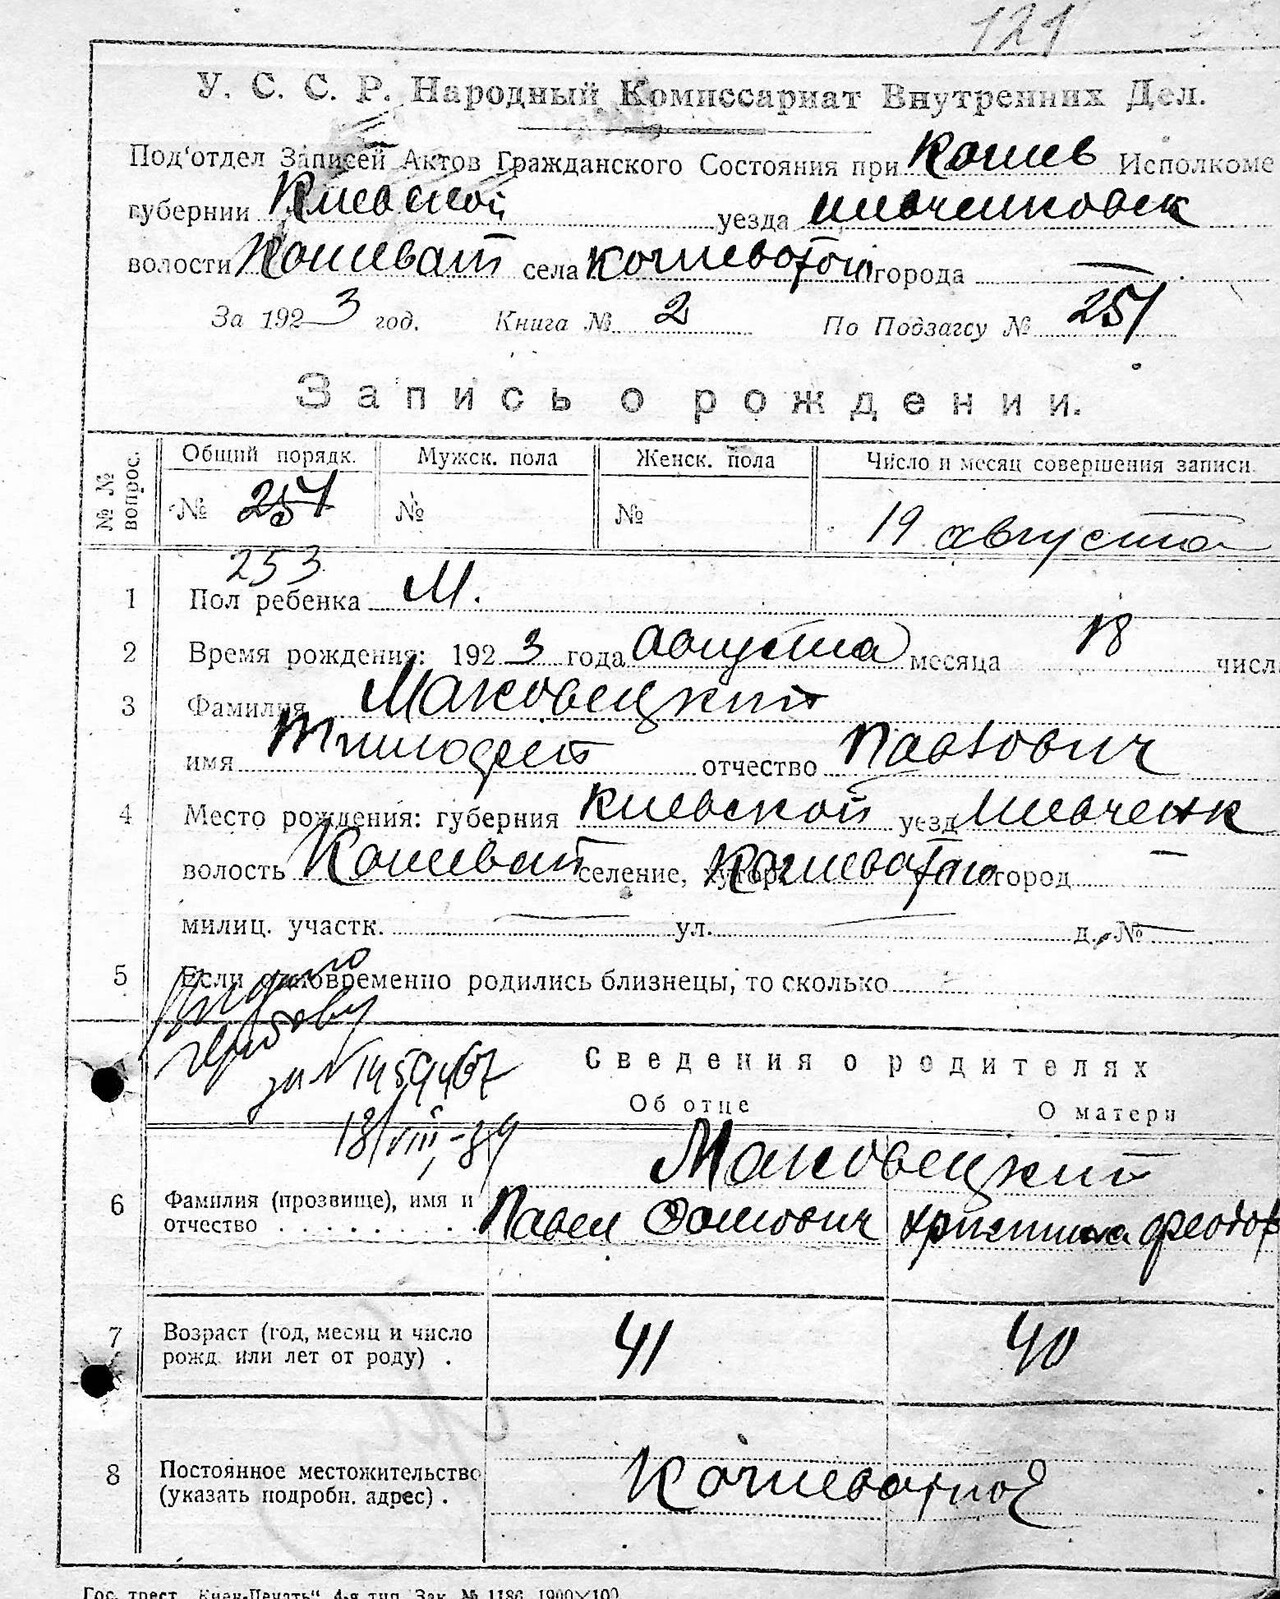 121
У. С. С. Р. Народный Комиссариат Внутренних Дел.
Под'отдел Записей Актов Гражданского Состояния при Кошев Исполкоме
губернии Киевской уезда шевченковск
волости Кошеват села Кошеватом города —
За 1923 год. Книга № 2 По Подзагсу № 251
Запись о рождении.
№ № вопрос. Общий порядк. Мужск. пола Женск. пола Число и месяц совершения записи.
№ 251 № № 19 августа
253
1 Пол ребенка М.
2 Время рождения: 1923 года августа месяца 18 числ
3 Фамилия Маковецкий
имя Тимофей отчество Павлович
4 Место рождения: губерния Киевской уезд Шевченк
волость Кошеват селение, хутор Кошеватом город —
милиц. участк. — ул. — д. № —
5 Если одновременно родились близнецы, то сколько
Видано
за № 1459467
18/VIII-39
Сведения о родителях
Об отце О матери
Маковецкий
6 Фамилия (прозвище), имя и отчество Павел Фомович Христина Феодор
7 Возраст (год, месяц и число рожд. или лет от роду) . 41 40
8 Постоянное местожительство (указать подробн. адрес) . Кошеватое
Гос. трест „Киев-Печать“ 4-я тип. Зак. № 1186 1900×100